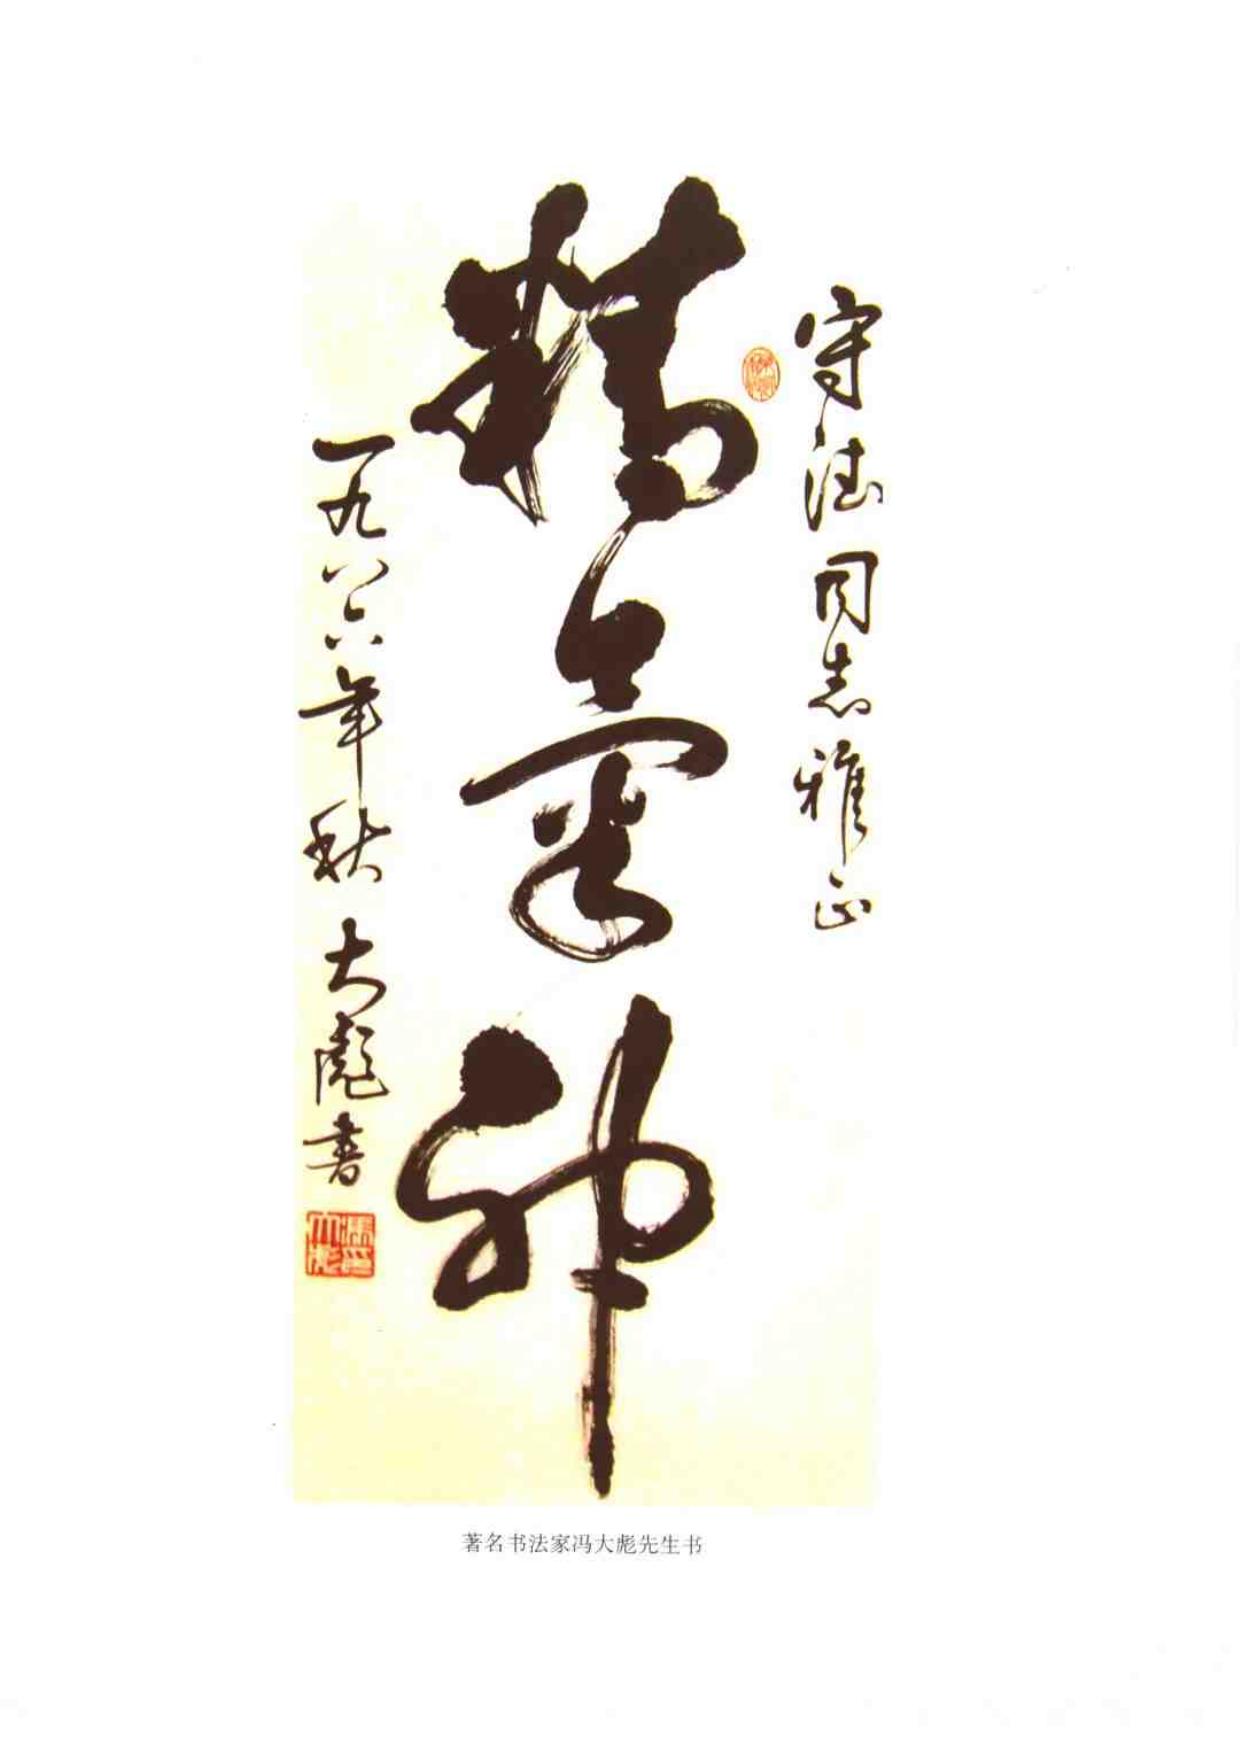 守法同志雅正
精氣神
一九八六年秋大彪書
著名书法家冯大彪先生书